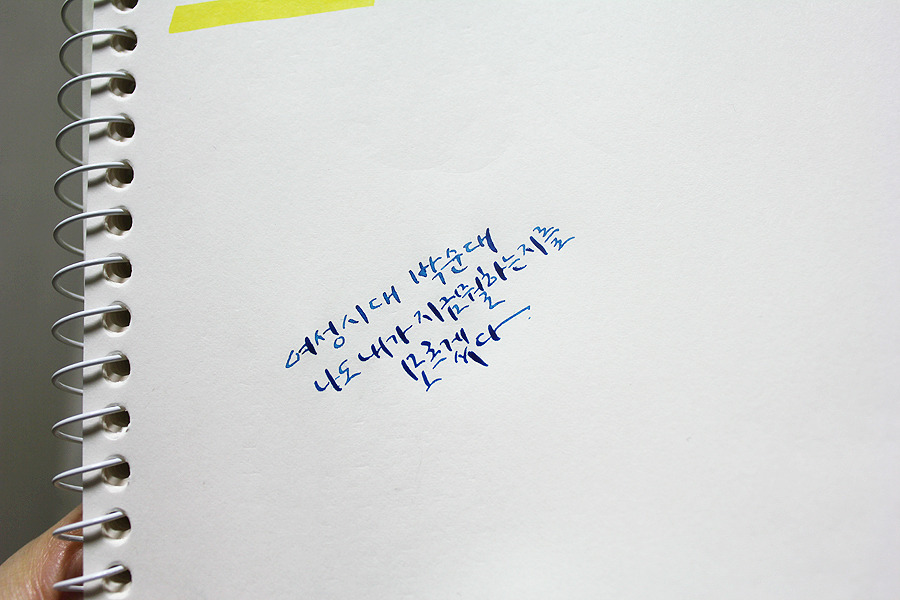 여성시대 박순대
나도 내가 지금 뭘하는지를
모르겠다